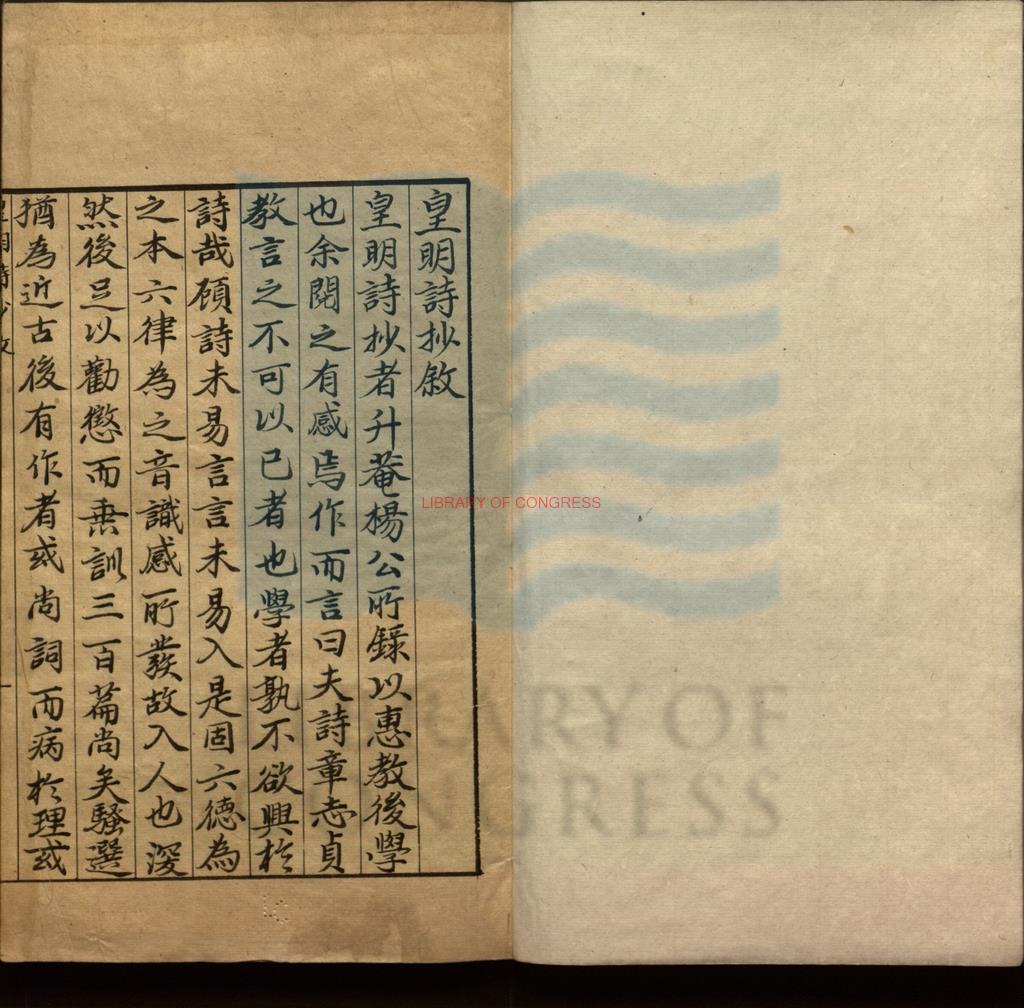 皇明詩抄敘
皇明詩抄者升菴楊公所錄以惠教後學
也余閱之有感焉作而言曰夫詩章志貞
教言之不可以已者也學者孰不欲興於
詩哉顧詩未易言言未易入是固六德為
之本六律為之音識感所發故入人也深
然後足以勸懲而垂訓三百篇尚矣騷選
猶為近古後有作者或尚詞而病於理或
LIBRARY OF CONGRESS
LIBRARY OF
CONGRESS